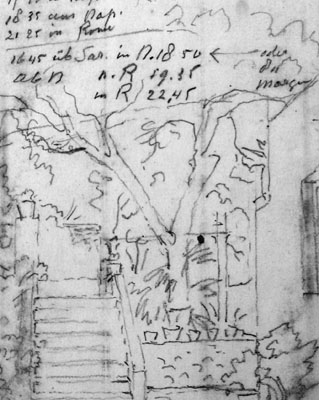 18 35 aus Nap.
21 25 in Rom
16 45 üb Sar. in N. 18 50 ← oder
ab N n. R 19.35
in R 22,45 morgen